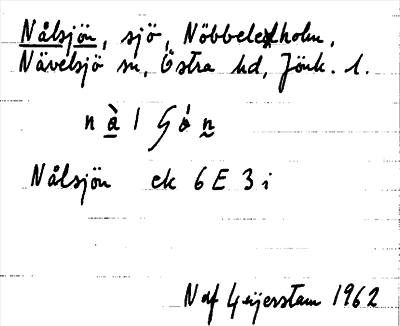 Nålsjön, sjö, Nöbbeleholm,
Nävelsjö sn, Östra hd, Jönk. l.
Nålsjön ek 6E 3i
N af Geijerstam 1962